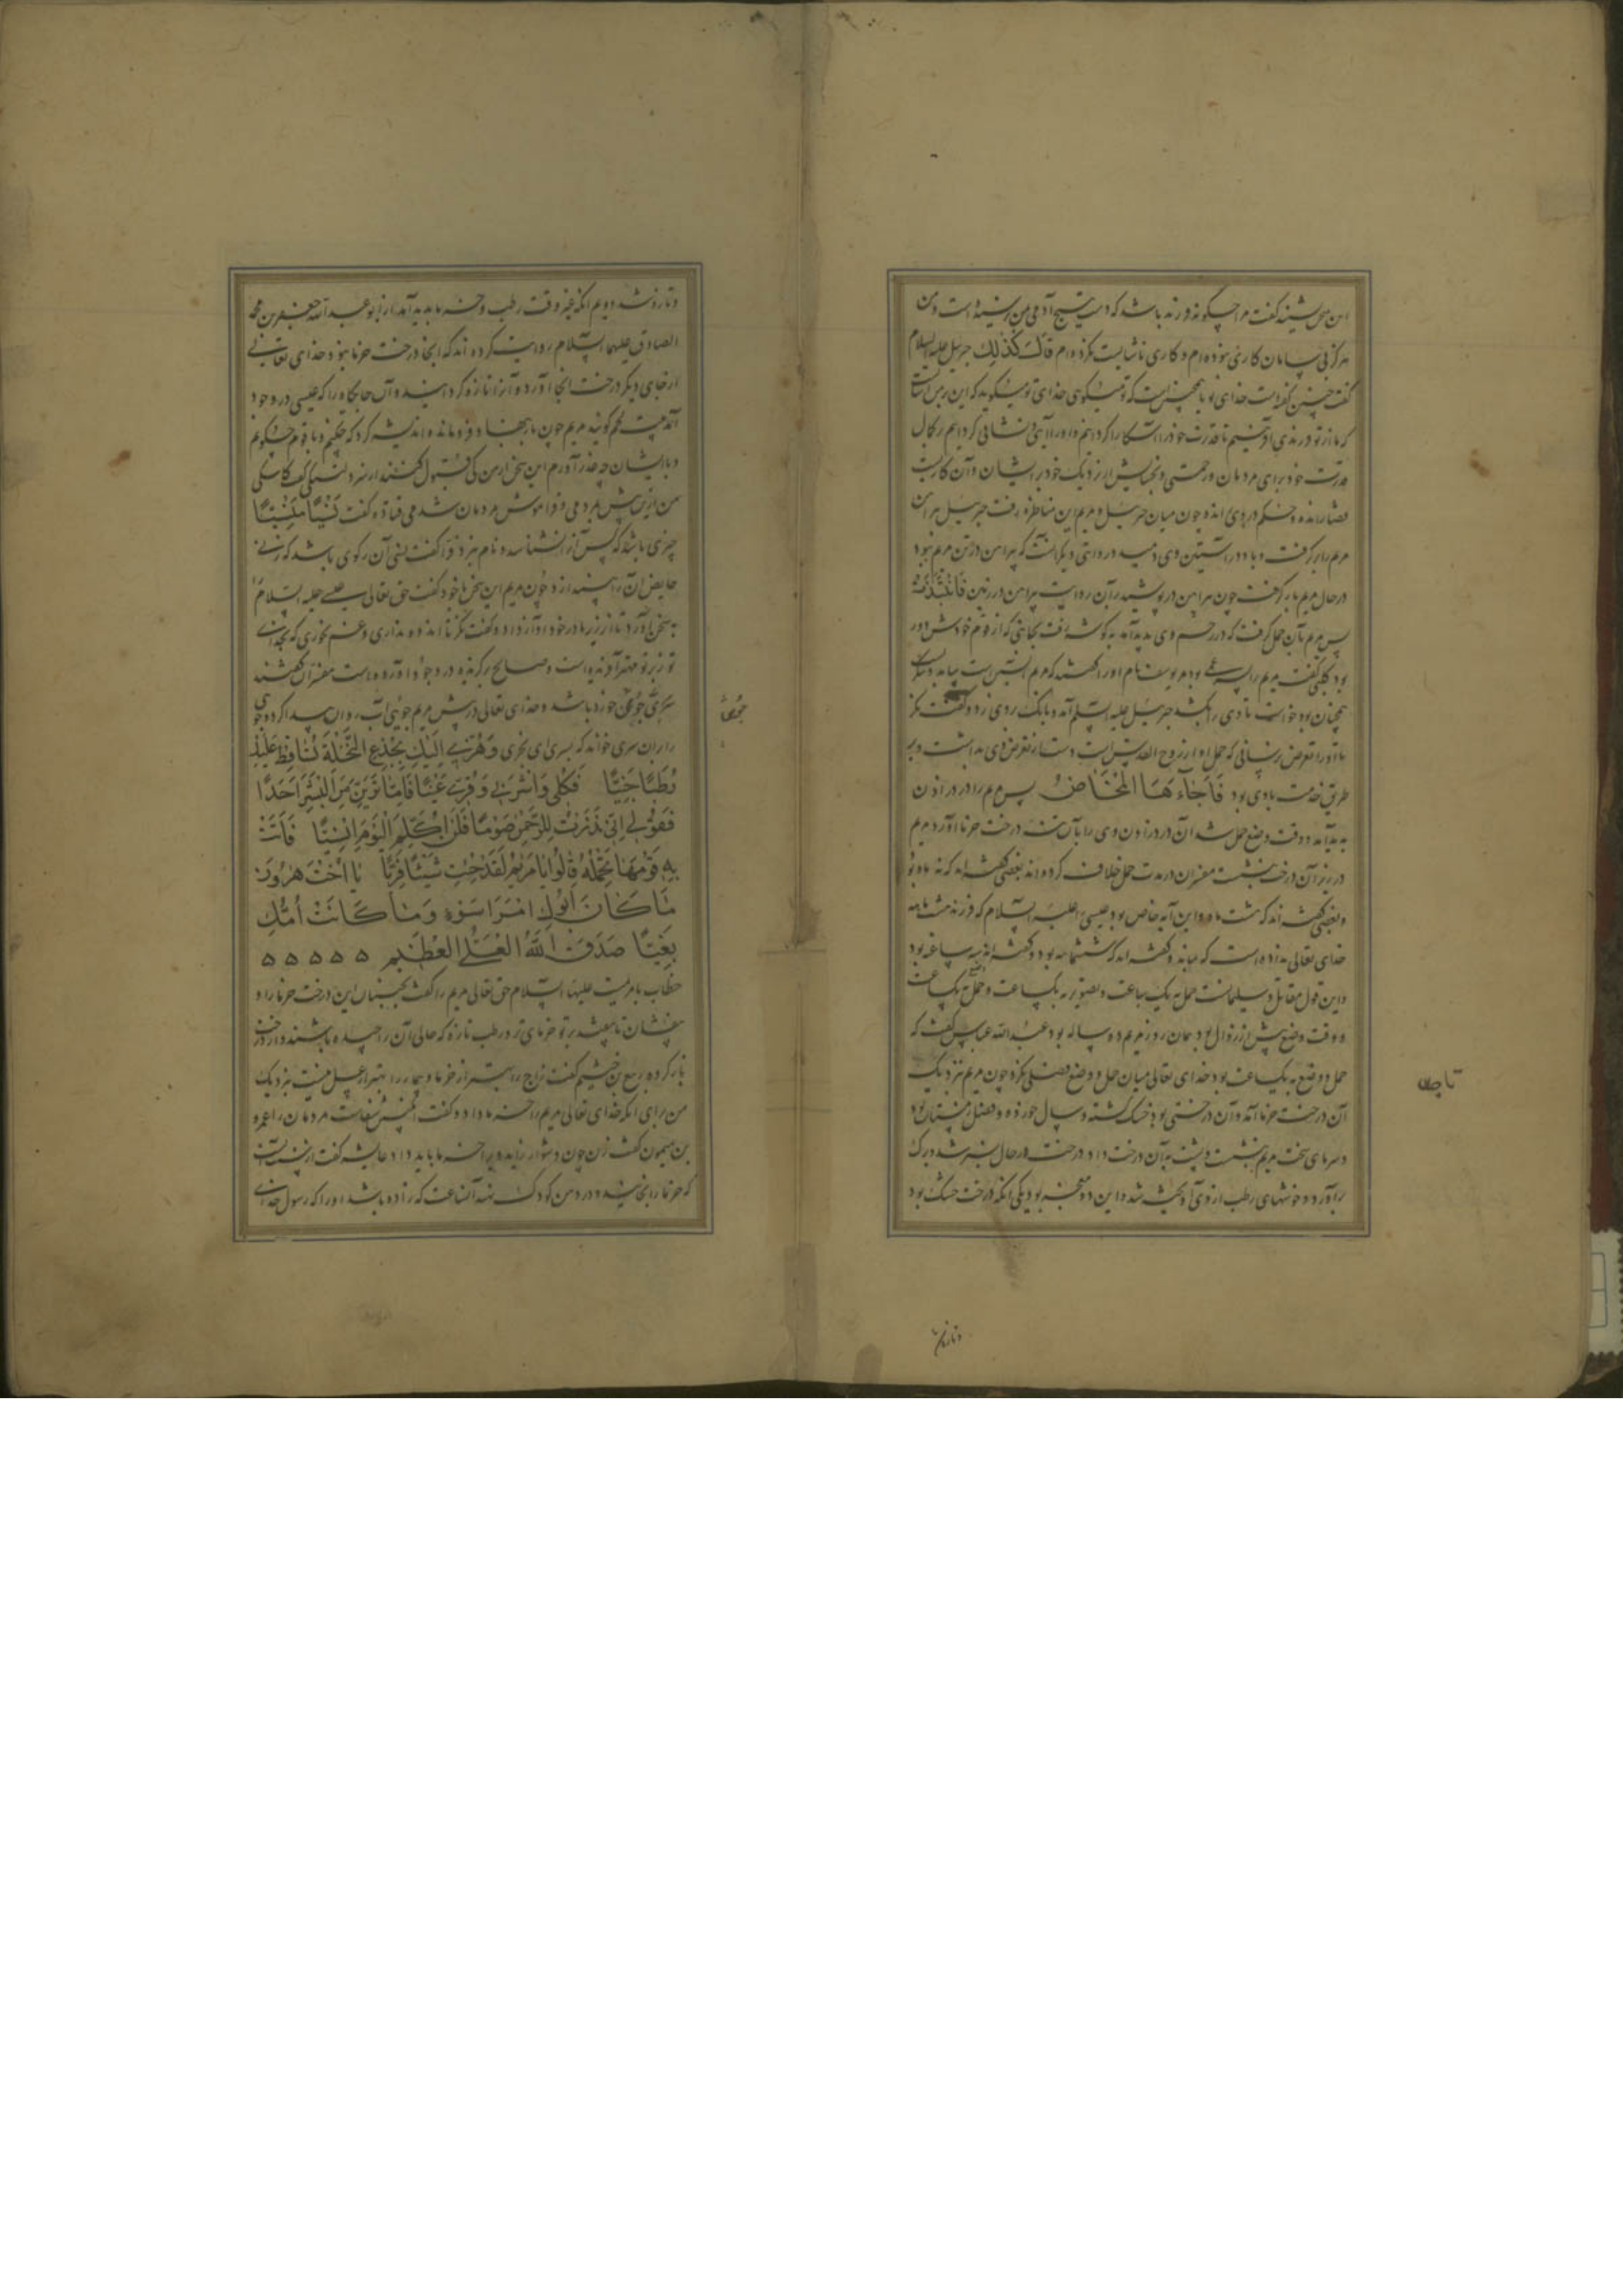 این سخن بشنید گفت مرا چگونه فرزند باشد که دست هیچ آدمی بمن نرسیده است و من
هرگز بی سامان کاری نبوده‌ام و کاری ناشایست نکرده‌ام قَالَ كَذٰلِكِ جبرئیل علیه السلام
گفت چنین گفته است خدای تو یا همچنین است که تو میگوئی خدای تو میگوید که این بر من آسانست
که ما از تو فرزندی آفرینیم تا قدرت خود را آشکارا کرده‌ایم و او را آیتی و نشانی کرده‌ایم بر کمال
قدرت خود برای مردمان و رحمتی و بخشایش از نزدیک خود بر ایشان و آن کاریست
قضا رانده و حکم در وی رانده چون میان جبرئیل و مریم این مناظره رفت جبرئیل پیراهن
مریم را برگرفت و باد در آستین وی دمید و روایتی دیگر آنست که پیراهن در تن مریم نبود
در حال مریم بار گرفت چون پیراهن در پوشید بر آن روایت پیراهن در زمین فَانْتَبَذَتْ
پس مریم بآن حمل گرفت که در رحم وی پدید آمد به گوشه رفت بجایی که از قوم خودش دور
بود کلبی گفت مریم را پسر عمی بود یوسف نام او را گفتند که مریم آبستن است
همچنان بود خواست تا وی را بکشد جبرئیل علیه السلم آمد و بانگ بر وی زد و گفت نگر
تا او را تعرض نرسانی که حمل او از روح القدس است دست از تعرض وی بداشت و بر
طریق خدمت با وی بود فَاَجَاۤءَهَا الْمَخَاضُ پس مریم را درد زادن
پدید آمد و وقت وضع حمل شد آن درد زادن وی را بآن تنه درخت خرما آورد مریم
در زیر آن درخت بنشست مفسران در مدت حمل خلاف کرده‌اند بعضی گفته‌اند که نه ماه بود
و بعضی گفته‌اند که هشت ماه و این آیه خاص بود عیسی را علیه السلام که فرزند هشت ماهه
خدای تعالی نداده است که بماند و گفته‌اند که ششماهه بود و گفته‌اند سه ساعت بود
و این قول مقاتل و سلیمانست حمل به یک ساعت و تصویر به یک ساعت و وضع به یک ساعت
و وقت وضع پیش از زوال بود همان روز مریم ده ساله بود عبد الله عباس گفت که
حمل و وضع به یک ساعت بود خدای تعالی میان حمل و وضع فصلی نکرد چون مریم نزدیک
آن درخت خرما آمد و آن درختی بود خشک گشته و سال خورده و فصل زمستان بود
و سرمای سخت مریم بنشست و پشت به آن درخت داد درخت در حال سبز شد و برگ
برآورد و خوشهای رطب از وی آویخته شد و این دو معجزه بود یکی آنکه درخت خشک بود
تا چهل
و تازه شد
و تازه شد دویم آنکه نه وقت رطب و خرما بود پدید آمد از ابو عبد الله جعفر بن محمد
الصادق علیهما السلام روایت کرده‌اند که آنجا درخت خرما نبود خدای تعالی
از جای دیگر درخت آنجا آورد و آنرا تازه گردانید و آن جایگاه را که عیسی در وجود
آمد بیت لحم گویند مریم چون بار بنهاد فرو ماند و اندیشه کرد که چکنم و با قوم چگویم
و با ایشان چه عذر آورم این سخن از من کی قبول کنند از سر دلتنگی گفت کاشکی
من ازین پیش مرده‌می و فراموش مردمان شده‌می قتاده گفت نَسْيًا مَنْسِيًّا
چیزی باشد که کس آنرا نشناسد و نام نبرد فرا گفت نسی آن رکوی باشد که زنی
حایض آن را بیندازد چون مریم این سخن با خود گفت حق تعالی عیسی علیه السلام را
به سخن آورد تا از زیر مادر خود را آواز داد و گفت نگر تا اندوه نداری و غم نخوری که خدای
تو زیر تو مهتر آفریده است و صالح برگزیده در وجود آورده است مفسران گفتند
سری جویی خورد باشد و خدای تعالی در پیش مریم جویی آب روان پیدا کرد و جوی
را بر آن سری خواند که یسری ای یجری وَهُزِّي اِلَيْكِ بِجِذْعِ النَّخْلَةِ تُسَاقِطْ عَلَيْكِ
رُطَبًا جَنِيًّا فَكُلِي وَاشْرَبِي وَقَرِّي عَيْنًا فَاِمَّا تَرَيِنَّ مِنَ الْبَشَرِ اَحَدًا
فَقُولِي اِنِّي نَذَرْتُ لِلرَّحْمٰنِ صَوْمًا فَلَنْ اُكَلِّمَ الْيَوْمَ اِنْسِيًّا فَاَتَتْ
بِهِ قَوْمَهَا تَحْمِلُهُ قَالُوا يَا مَرْيَمُ لَقَدْ جِئْتِ شَيْئًا فَرِيًّا يَا اُخْتَ هٰرُونَ
مَا كَانَ اَبُوكِ امْرَاَ سَوْءٍ وَمَا كَانَتْ اُمُّكِ
بَغِيًّا صَدَقَ اللّٰهُ الْعَلِيُّ الْعَظِيمُ ه ه ه ه ه
خطاب با مریم است علیها السلام حق تعالی مریم را گفت بجنبان این درخت خرما را و
بیفشان تا بیفتد بر تو خرمای تر و رطب تازه که حالی آن را چیده باشند و از درخت
باز کرده ربیع بن خثیم گفت زچه را بهتر از خرما و بیمار را بهتر از عسل نیست نزدیک
من برای آنکه خدای تعالی مریم را خرما داد و گفت انگبین شفاست مردمان را عمرو
بن میمون گفت زن چون دشوار زاید ویرا خرما باید داد عایشه گفت از سنت است
که خرما را بخایند و در دهن کودک نهند آن ساعت که زاده باشد او را که رسول خدای